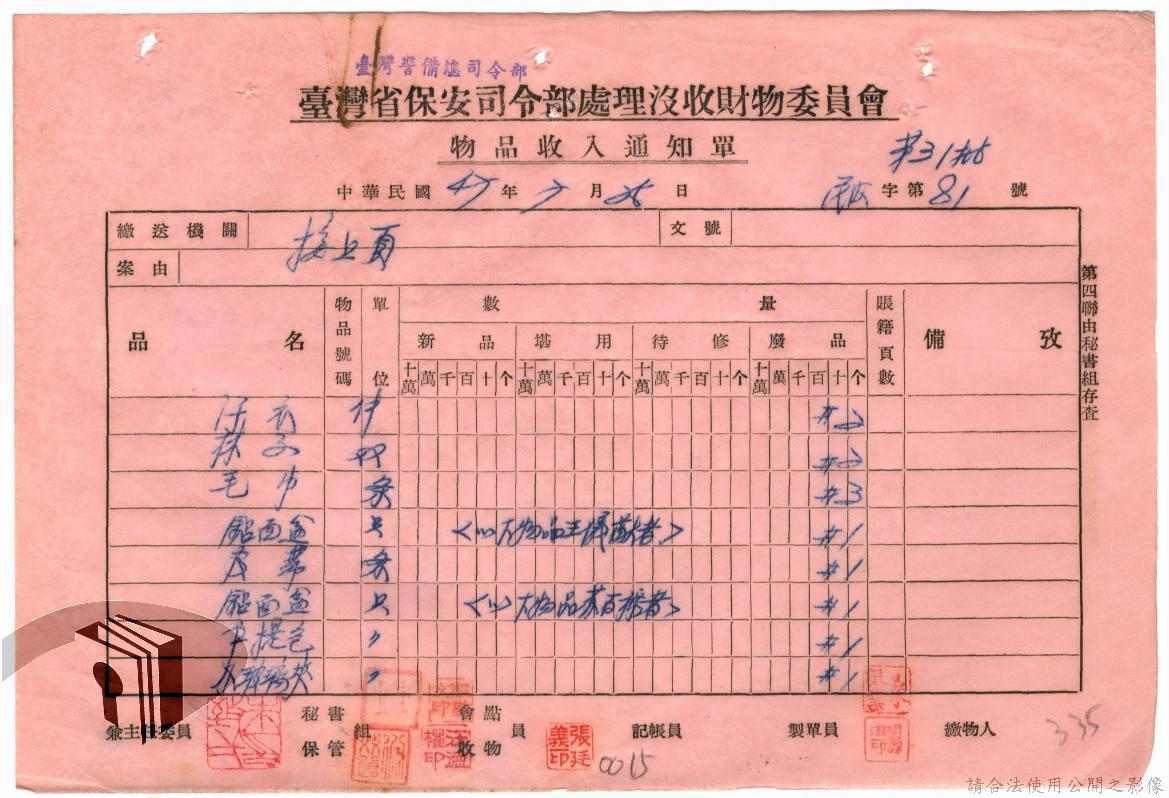 臺灣警備總司令部
臺灣省保安司令部處理沒收財物委員會
物品收入通知單
第31批
中華民國 年 月 日 字第81號
繳送機關 接上頁 文號
案由
品名 物品號碼 單位 數量 賬籍頁數 備攷
新品 堪用 待修 廢品
十萬 萬 千 百 十 个 十萬 萬 千 百 十 个 十萬 萬 千 百 十 个 十萬 萬 千 百 十 个
件 #2
#2
毛巾 条 #3
鋁面盆 只 #1
皮帶 条 #1
鋁面盆 只 #1
手提包 〃 #1
〃 #1
兼主任委員 秘書保管組 會點收物員 記帳員 製單員 繳物人
張廷義印
0015
335
第四聯由秘書組存查
請合法使用公開之影像